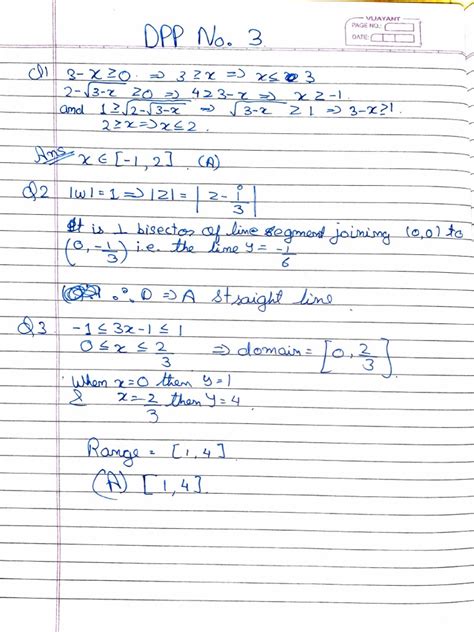 VIJAYANT
PAGE NO.:
DATE:
DPP No. 3
Q1 3-x≥0 ⇒ 3≥x ⇒ x≤ 3
2-√3-x ≥0 ⇒ 4≥3-x ⇒ x≥-1.
and 1≥√2-√3-x ⇒ √3-x ≥1 ⇒ 3-x≥1.
2≥x ⇒ x≤2.
Ans x∈[-1,2]. (A)
Q2 |w|=1 ⇒ |z| = |z-i/3|
It is ⊥ bisector of line segment joining (0,0) to
(0,-1/3) i.e. the line y = -1/6
∴ D ⇒ A straight line.
Q3 -1≤3x-1≤1
0≤x≤2/3 ⇒ domain = [0,2/3]
When x=0 then y=1
& x=2/3 then y=4
Range = [1,4]
(A) [1,4].